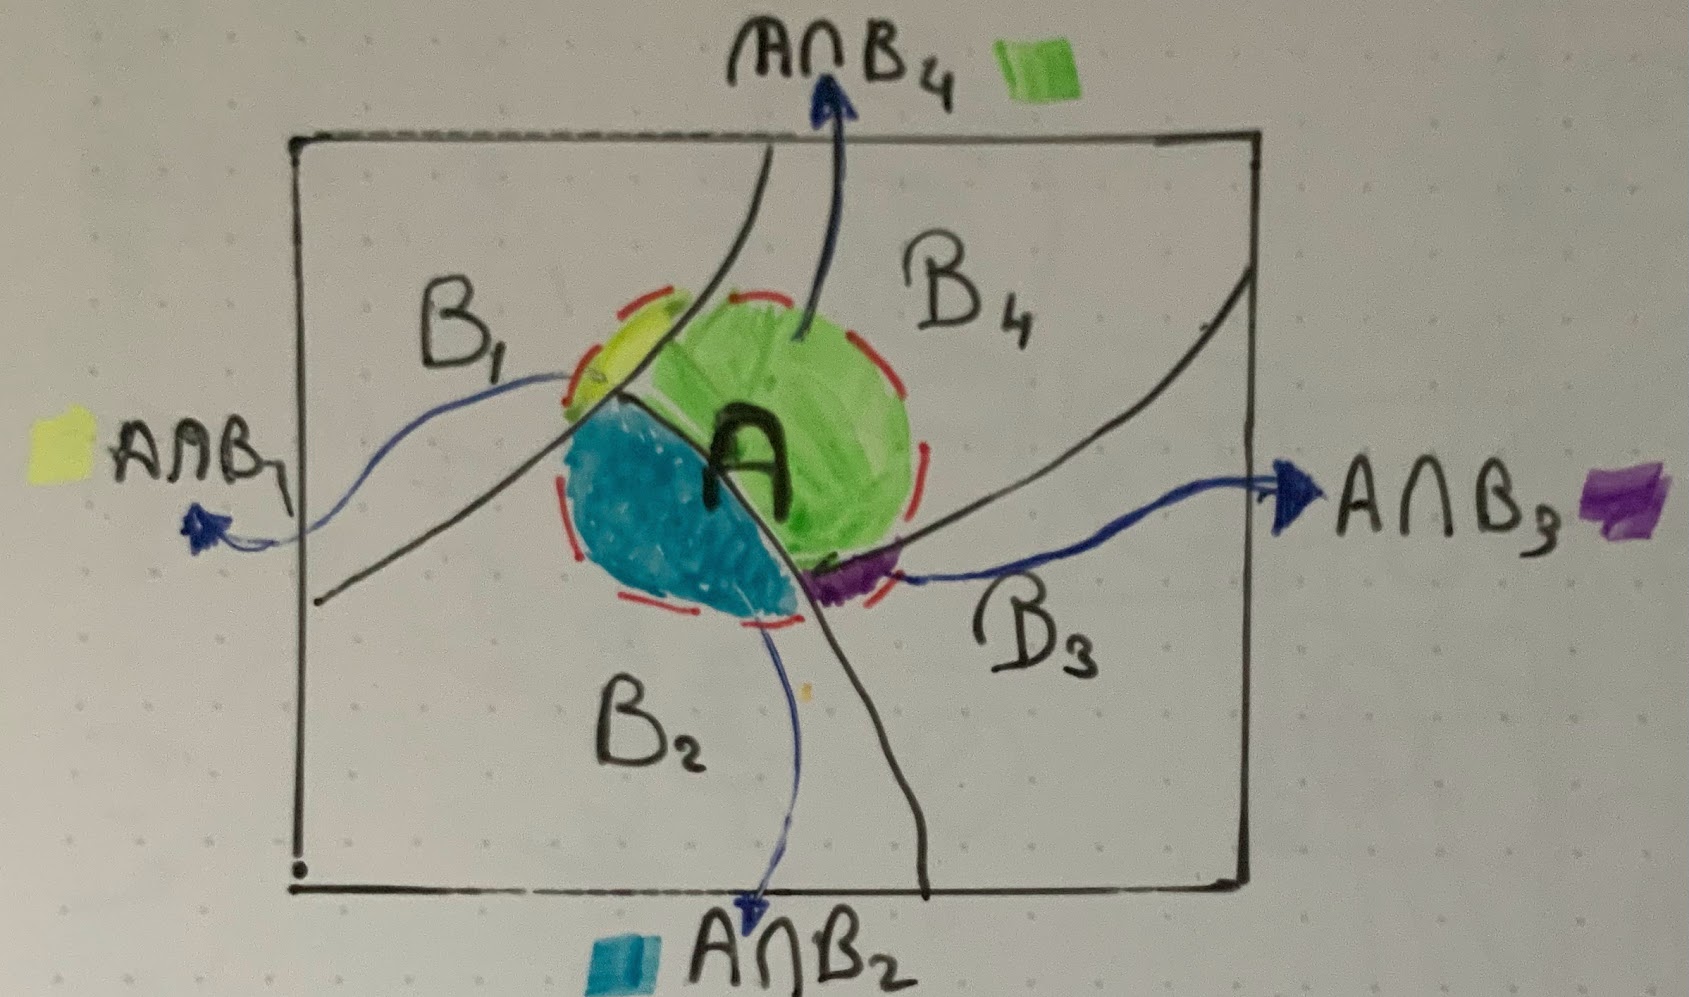 A∩B₄
B₄
B₁
A∩B₁
A
A∩B₃
B₃
B₂
A∩B₂